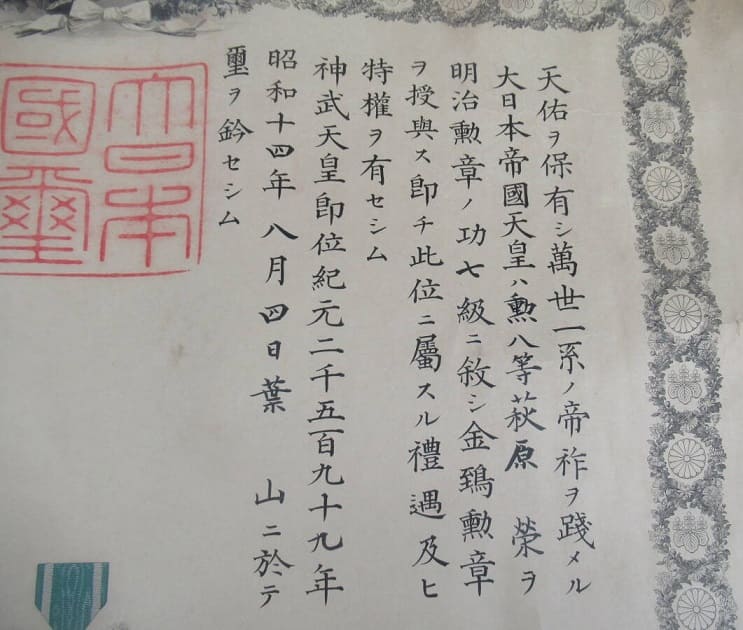 天佑ヲ保有シ萬世一系ノ帝祚ヲ踐メル
大日本帝國天皇ハ勲八等萩原榮ヲ
明治勲章ノ功七級ニ敘シ金鵄勲章
ヲ授與ス卽チ此位ニ屬スル禮遇及ヒ
特權ヲ有セシム
神武天皇卽位紀元二千五百九十九年
昭和十四年八月四日葉山ニ於テ
璽ヲ鈐セシム
大日本
國璽